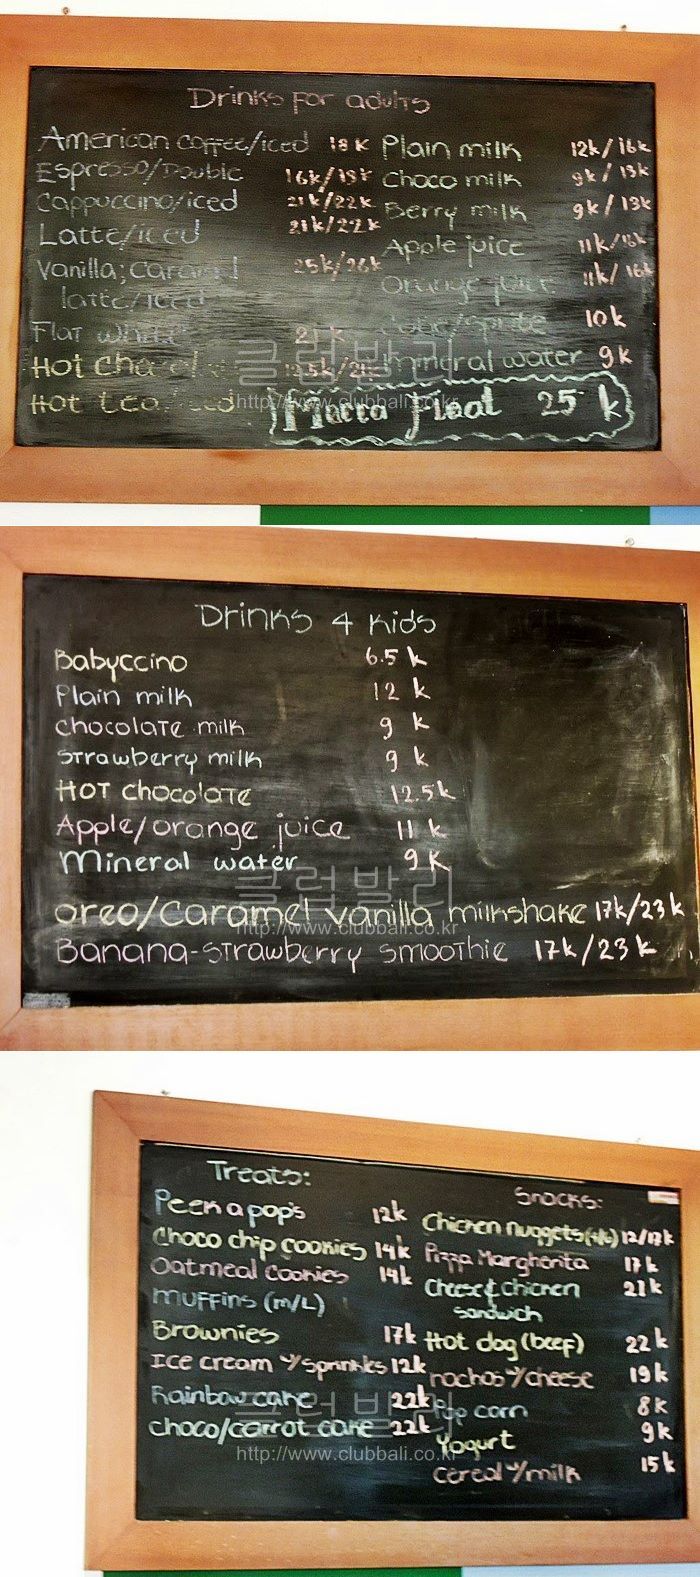 Drinks for adults
American coffee/iced 18k
Espresso/Double 16k/19k
Cappuccino/iced 21k/22k
Latte/iced 21k/22k
Vanilla; Caramel 25k/26k
latte/iced
Flat white
Hot
Hot tea
Plain milk 12k/16k
Choco milk 9k/13k
Berry milk 9k/13k
Apple juice 11k/16k
Orange juice 11k/16k
10k
Mineral water 9k
Float 25 k
클럽발리
http://www.clubbali.co.kr
Drinks 4 Kids
Babyccino 6.5 k
Plain milk 12 k
Chocolate milk 9 k
Strawberry milk 9 k
Hot chocolate 12.5k
Apple/orange juice 11 k
Mineral water 9k
클럽발리
oreo/caramel vanilla milkshake 17k/23k
http://www.clubbali.co.kr
Banana-strawberry smoothie 17k/23k
Treats:
Peek a pop's 12k
Choco chip cookies 14k
Oatmeal cookies 14k
muffins (m/L)
Brownies 17k
Ice cream w/sprinkles 12k
Rainbow cake 22k
choco/carrot cake 22k
Snacks:
Chicken nuggets(4/6) 12/17k
Pizza Margherita 17k
Cheese & chicken 21k
sandwich
Hot dog (beef) 22k
nachos w/cheese 19k
Pop corn 8k
Yogurt 9k
cereal w/milk 15k
클럽발리
http://www.clubbali.co.kr